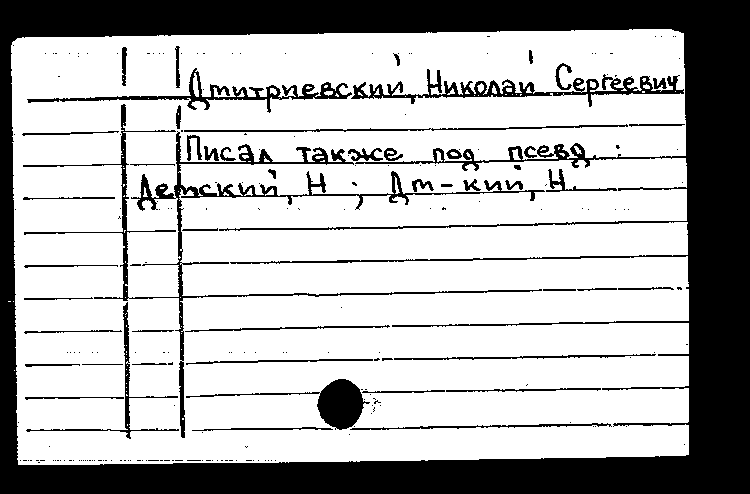 Дмитриевский, Николай Сергеевич
Писал также под псевд. :
Детский, Н ; Дм-кий, Н.